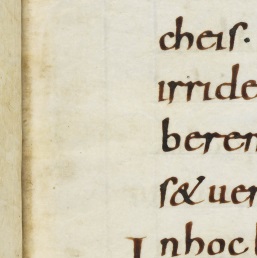 cheis.
irride
beren
s&uer
Inhocl